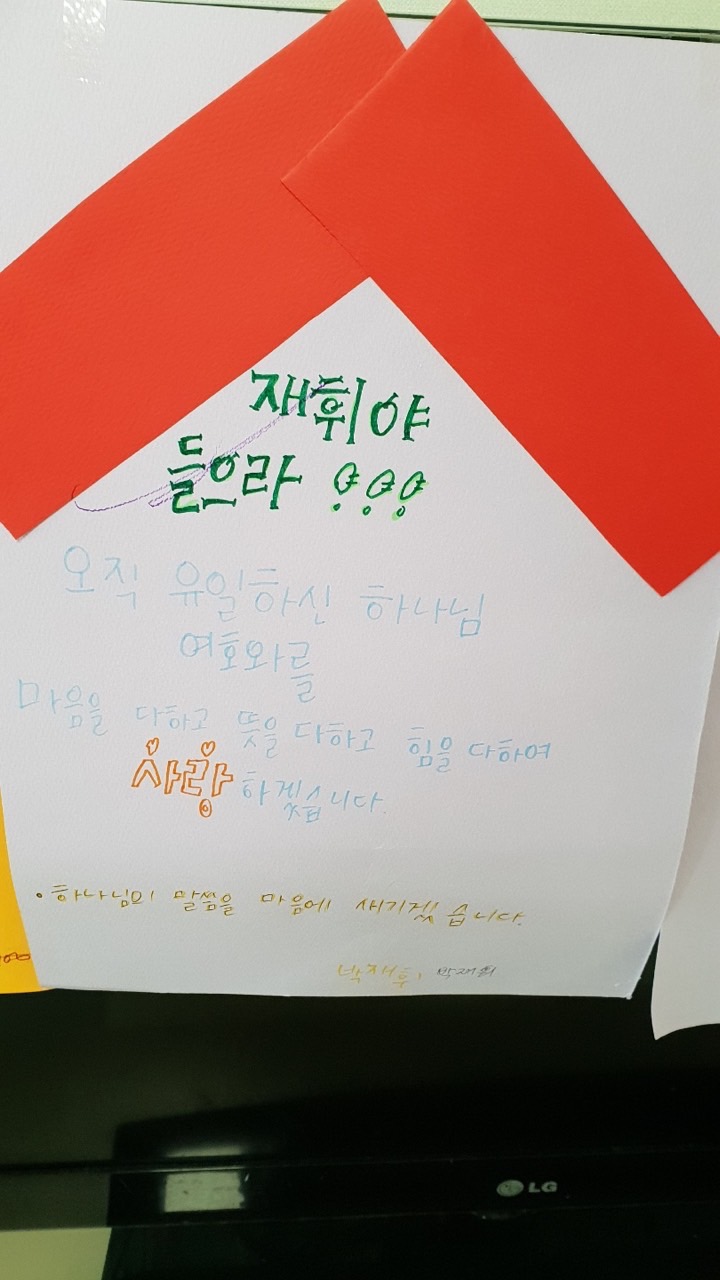 재휘야
들으라 !!!
오직 유일하신 하나님
여호와를
마음을 다하고 뜻을 다하고 힘을 다하여
사랑 하겠습니다.
• 하나님의 말씀을 마음에 새기겠습니다.
박재휘 박재휘
LG